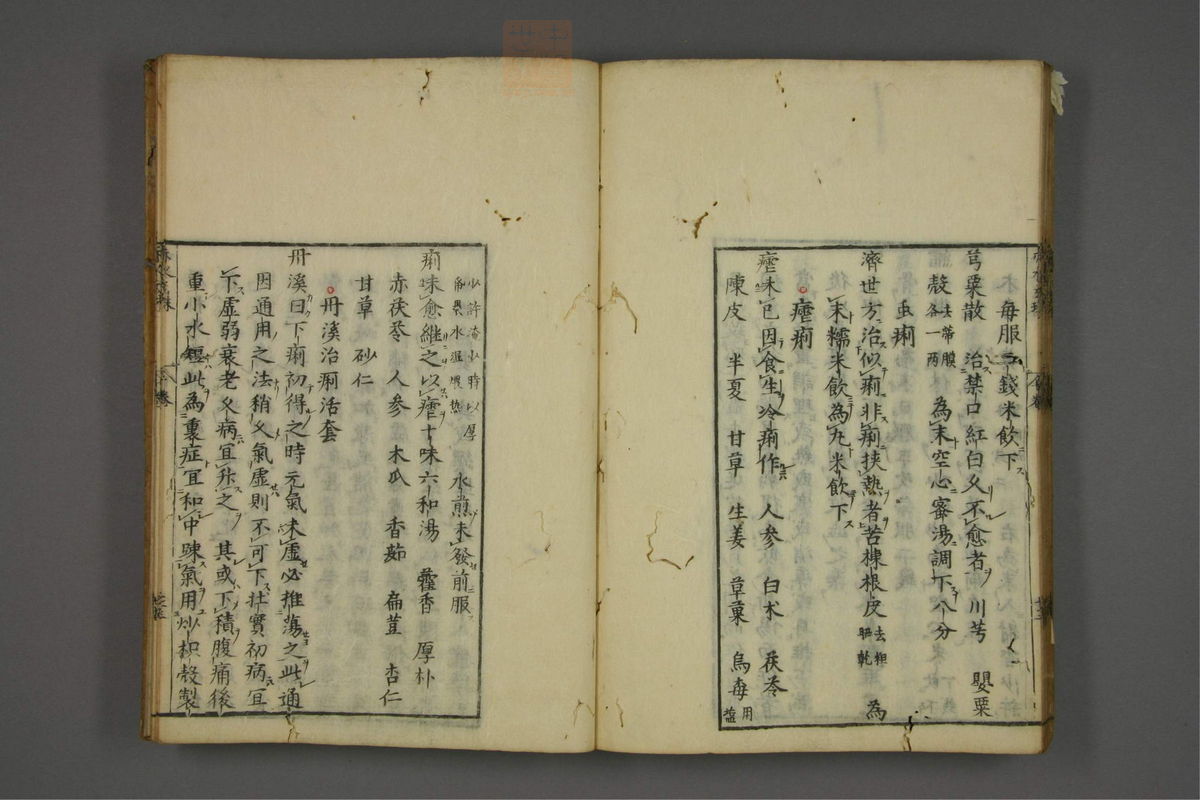 毎服二錢米飲下
芎粟散 治禁口紅白久不愈者 川芎 嬰粟
殻去蒂膜各一兩 為末空心蜜湯調下八分
虫痢
濟世方治似痢非痢挾熱者苦楝根皮去粗晒乾 為
末糯米飲為丸米飲下
瘧痢
瘧味已因食生冷痢作 人参 白朮 茯苓
陳皮 半夏 甘草 生姜 草菓 烏毎用塩
少許淹少時以厚
帋畏水濕煨熱 水煎未發前服
痢味愈継之以瘧十味六和湯 藿香 厚朴
赤茯苓 人参 木瓜 香茹 扁荳 杏仁
甘草 砂仁
丹溪治痢活套
丹溪曰下痢初得之時元氣未虚必推蕩之此通
因通用之法稍久氣虚則不可下壮實初病宜
下虚弱衰老久病宜升之 其或下積腹痛後
重小水短此為裏症宜和中踈氣用炒枳殻製